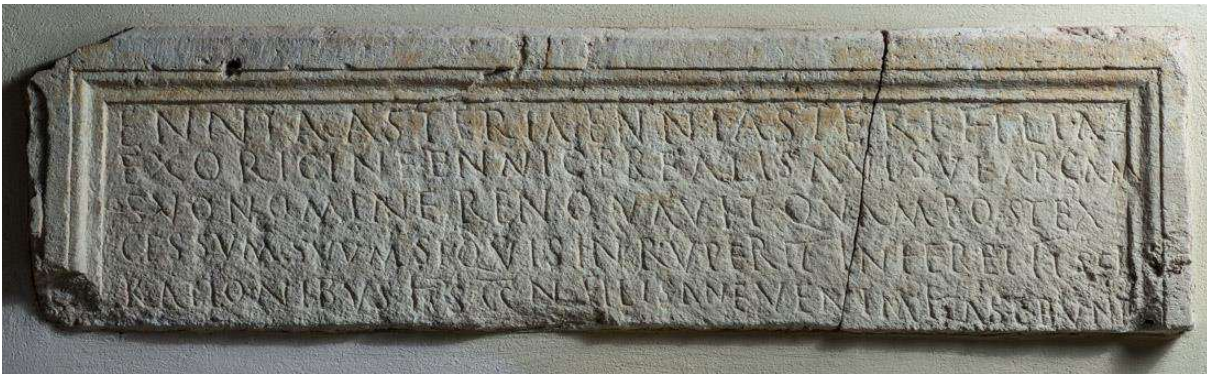 ENNIA ASTERIA ENNI ASTERI FILIA
EX ORIGINE ENNI CEREALIS AVI SVI ARCAM
SVO NOMINE RENOVAVIT QVAM POST EX
CESSVM SVVM SI QVIS INRVPERIT INFERET
RATIONIBVS